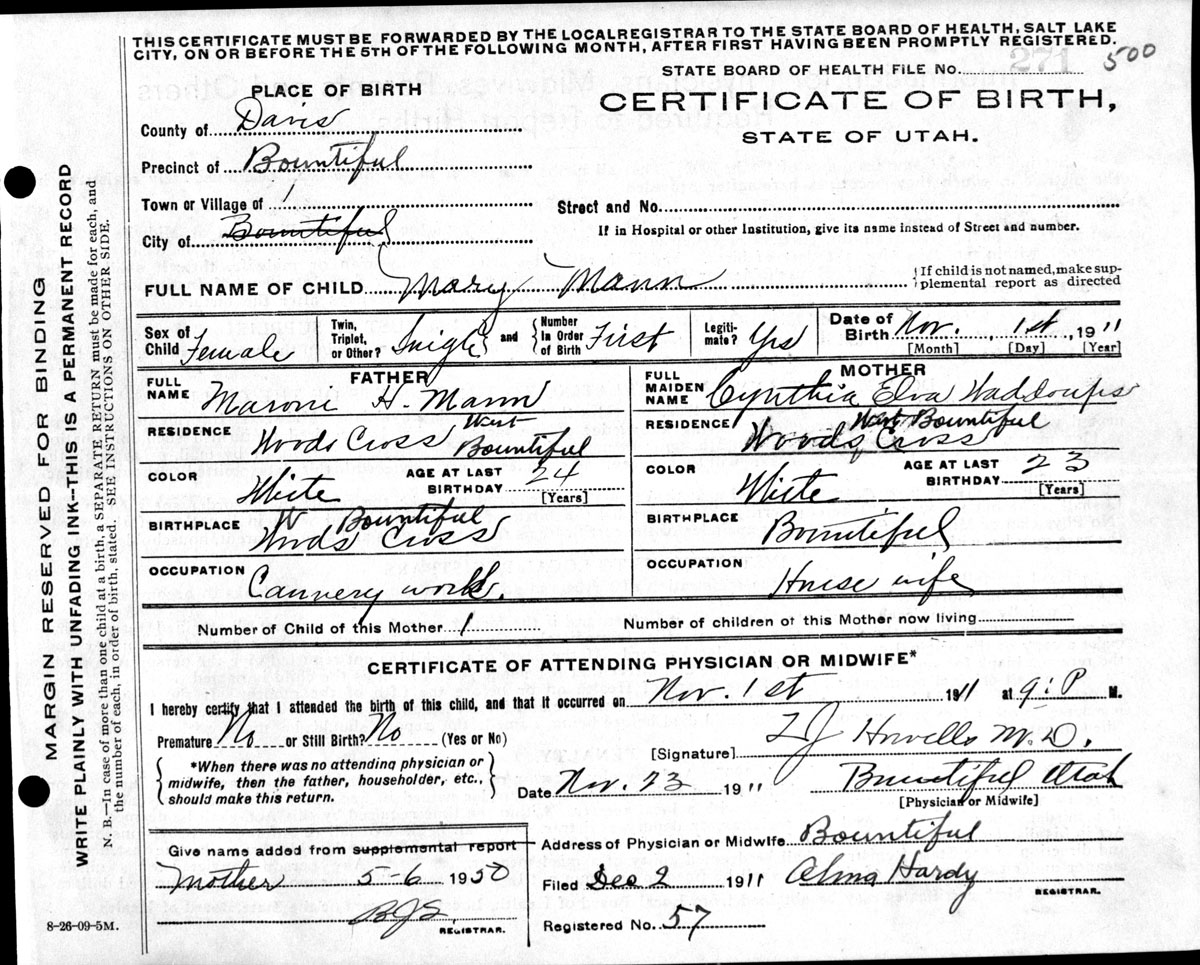 THIS CERTIFICATE MUST BE FORWARDED BY THE LOCALREGISTRAR TO THE STATE BOARD OF HEALTH, SALT LAKE
CITY, ON OR BEFORE THE 5TH OF THE FOLLOWING MONTH, AFTER FIRST HAVING BEEN PROMPTLY REGISTERED.
STATE BOARD OF HEALTH FILE NO. 271 500
PLACE OF BIRTH
CERTIFICATE OF BIRTH,
STATE OF UTAH.
County of Davis
Precinct of Bountiful
Town or Village of 1
Street and No.
City of Bountiful
If in Hospital or other Institution, give its name instead of Street and number.
FULL NAME OF CHILD Mary Mann {If child is not named, make sup-
plemental report as directed
Sex of Child Female
Twin, Triplet, or Other? Single and {Number in Order of Birth First
Legiti-mate? Yes
Date of Birth Nov. 1st, 1911
[Month] [Day] [Year]
FATHER
FULL NAME Maroni H. Mann
MOTHER
FULL MAIDEN NAME Cynthia Elva Waddoups
RESIDENCE Woods Cross West Bountiful
RESIDENCE Woods Cross West Bountiful
COLOR White
AGE AT LAST BIRTHDAY 24 [Years]
COLOR White
AGE AT LAST BIRTHDAY 23 [Years]
BIRTHPLACE W Bountiful
Woods Cross
BIRTHPLACE Bountiful
OCCUPATION Cannery work.
OCCUPATION House wife
Number of Child of this Mother 1
Number of children of this Mother now living
CERTIFICATE OF ATTENDING PHYSICIAN OR MIDWIFE*
I hereby certify that I attended the birth of this child, and that it occurred on Nov. 1st 1911 at 9: P M.
Premature No or Still Birth? No (Yes or No)
[Signature] Howells M.D.
{*When there was no attending physician or
midwife, then the father, householder, etc.,
should make this return.}
Date Nov. 23 1911
Bountiful Utah
[Physician or Midwife]
Give name added from supplemental report
Mother 5-6 1950
REGISTRAR.
Address of Physician or Midwife Bountiful
Filed Dec 2 1911 Alma Hardy
REGISTRAR.
Registered No. 57
8-26-09-5M.
MARGIN RESERVED FOR BINDING
WRITE PLAINLY WITH UNFADING INK--THIS IS A PERMANENT RECORD
N. B.—In case of more than one child at a birth, a SEPARATE RETURN must be made for each, and
the number of each, in order of birth, stated. SEE INSTRUCTIONS ON OTHER SIDE.